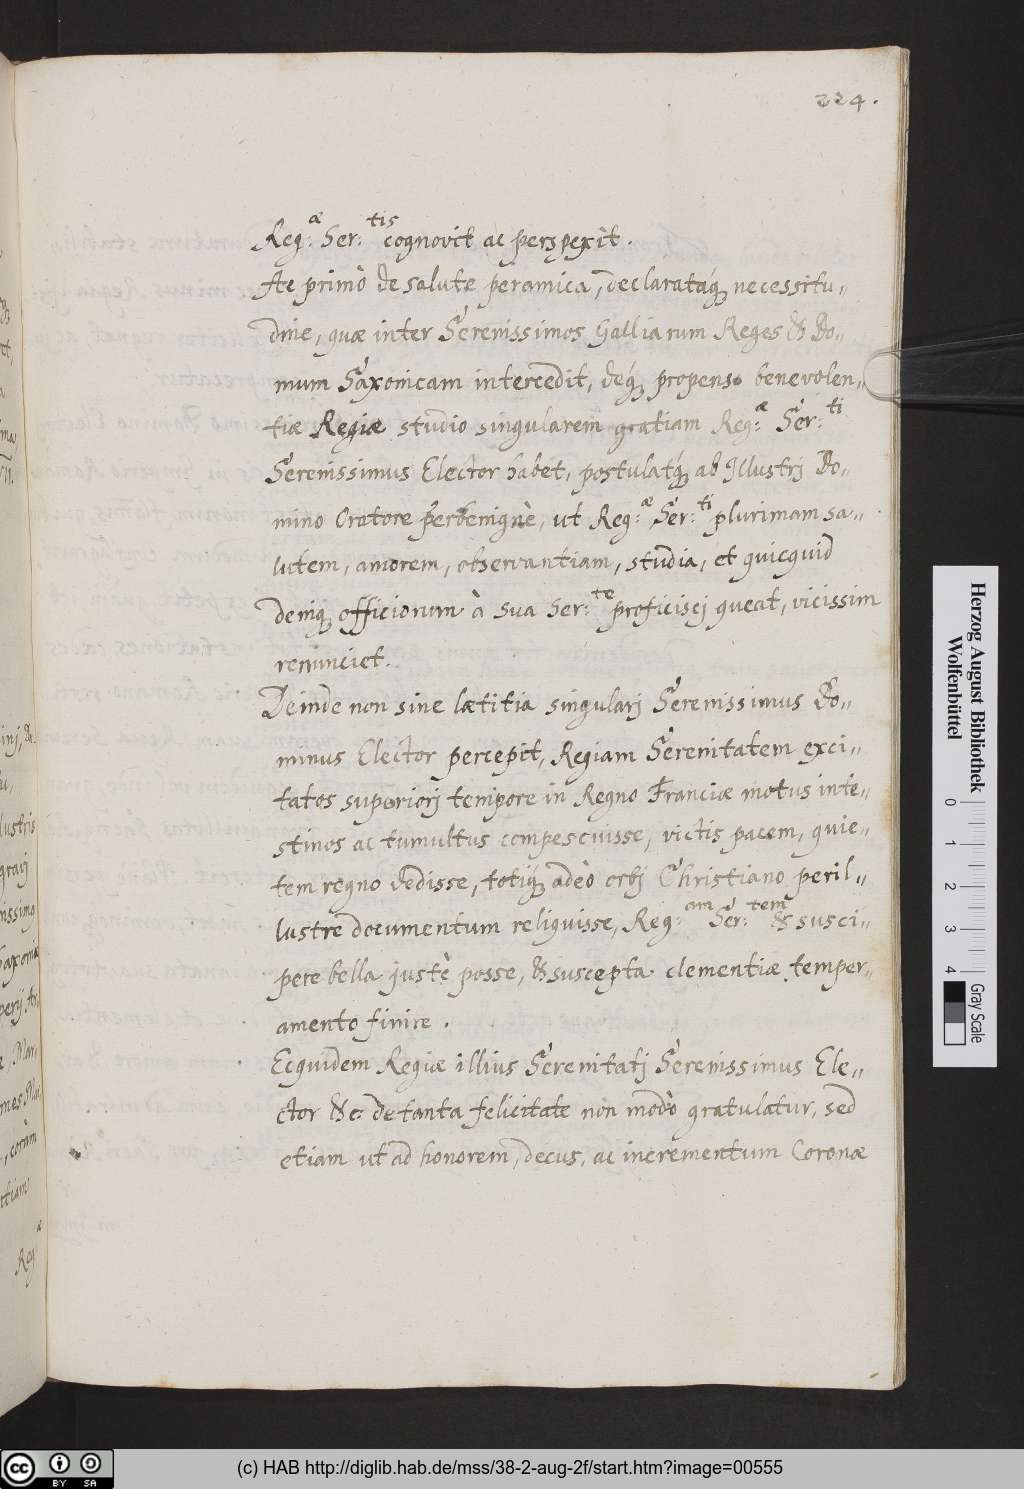 224.
Reg:æ Ser:tis cognovit ac perspexit.
Ac primò de salute peramica, declarataq́ necessitu„
dine, quæ inter Serenissimos Galliarum Reges & Do„
mum Saxonicam intercedit, deq́ propenso benevolen„
tiæ Regiæ studio singularem gratiam Reg:æ Ser:ti
Serenissimus Elector habet, postulatq́ ab Illustrj Do„
mino Oratore perbenignè, ut Reg:æ Ser:ti plurimam sa„
lutem, amorem, observantiam, studia, et quicquid
deniq officiorum à sua Ser:te proficiscj queat, vicissim
renunciet.
Deinde non sine lætitia singularj Serenissimus Do„
minus Elector percepit, Regiam Serenitatem exci„
tatos superiorj tempore in Regno Franciæ motus inte„
stinos ac tumultus compescuisse, victis pacem, quie„
tem regno dedisse, totiq́ adeò orbj Christiano peril„
lustre documentum reliquisse, Reg:am Ser:tem & susci„
pere bella justè posse, & suscepta clementiæ temper„
amento finire.
Ecquidem Regiæ illius Serenitatj Serenissimus Ele„
ctor &c: de tanta felicitate non modò gratulatur, sed
etiam ut ad honorem, decus, ac incrementum Coronæ
Herzog August Bibliothek
Wolfenbüttel
0 1 2 3 4
Gray Scale
cc BY SA
(c) HAB http://diglib.hab.de/mss/38-2-aug-2f/start.htm?image=00555